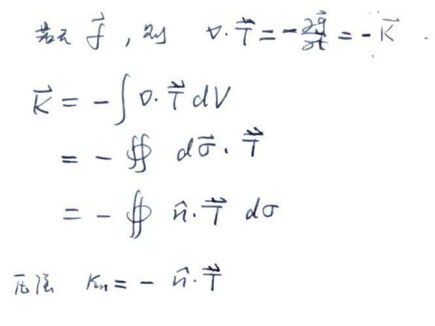 若无 \vec{f} , 则 ∇·\vec{\vec{T}} = -\frac{∂\vec{g}}{∂t} = -\vec{K} .
\vec{K} = -∫ ∇·\vec{\vec{T}} dV
= -∯ d\vec{σ}·\vec{\vec{T}}
= -∮ \hat{n}·\vec{\vec{T}} dσ
压强 K_n = - \hat{n}·\vec{\vec{T}}